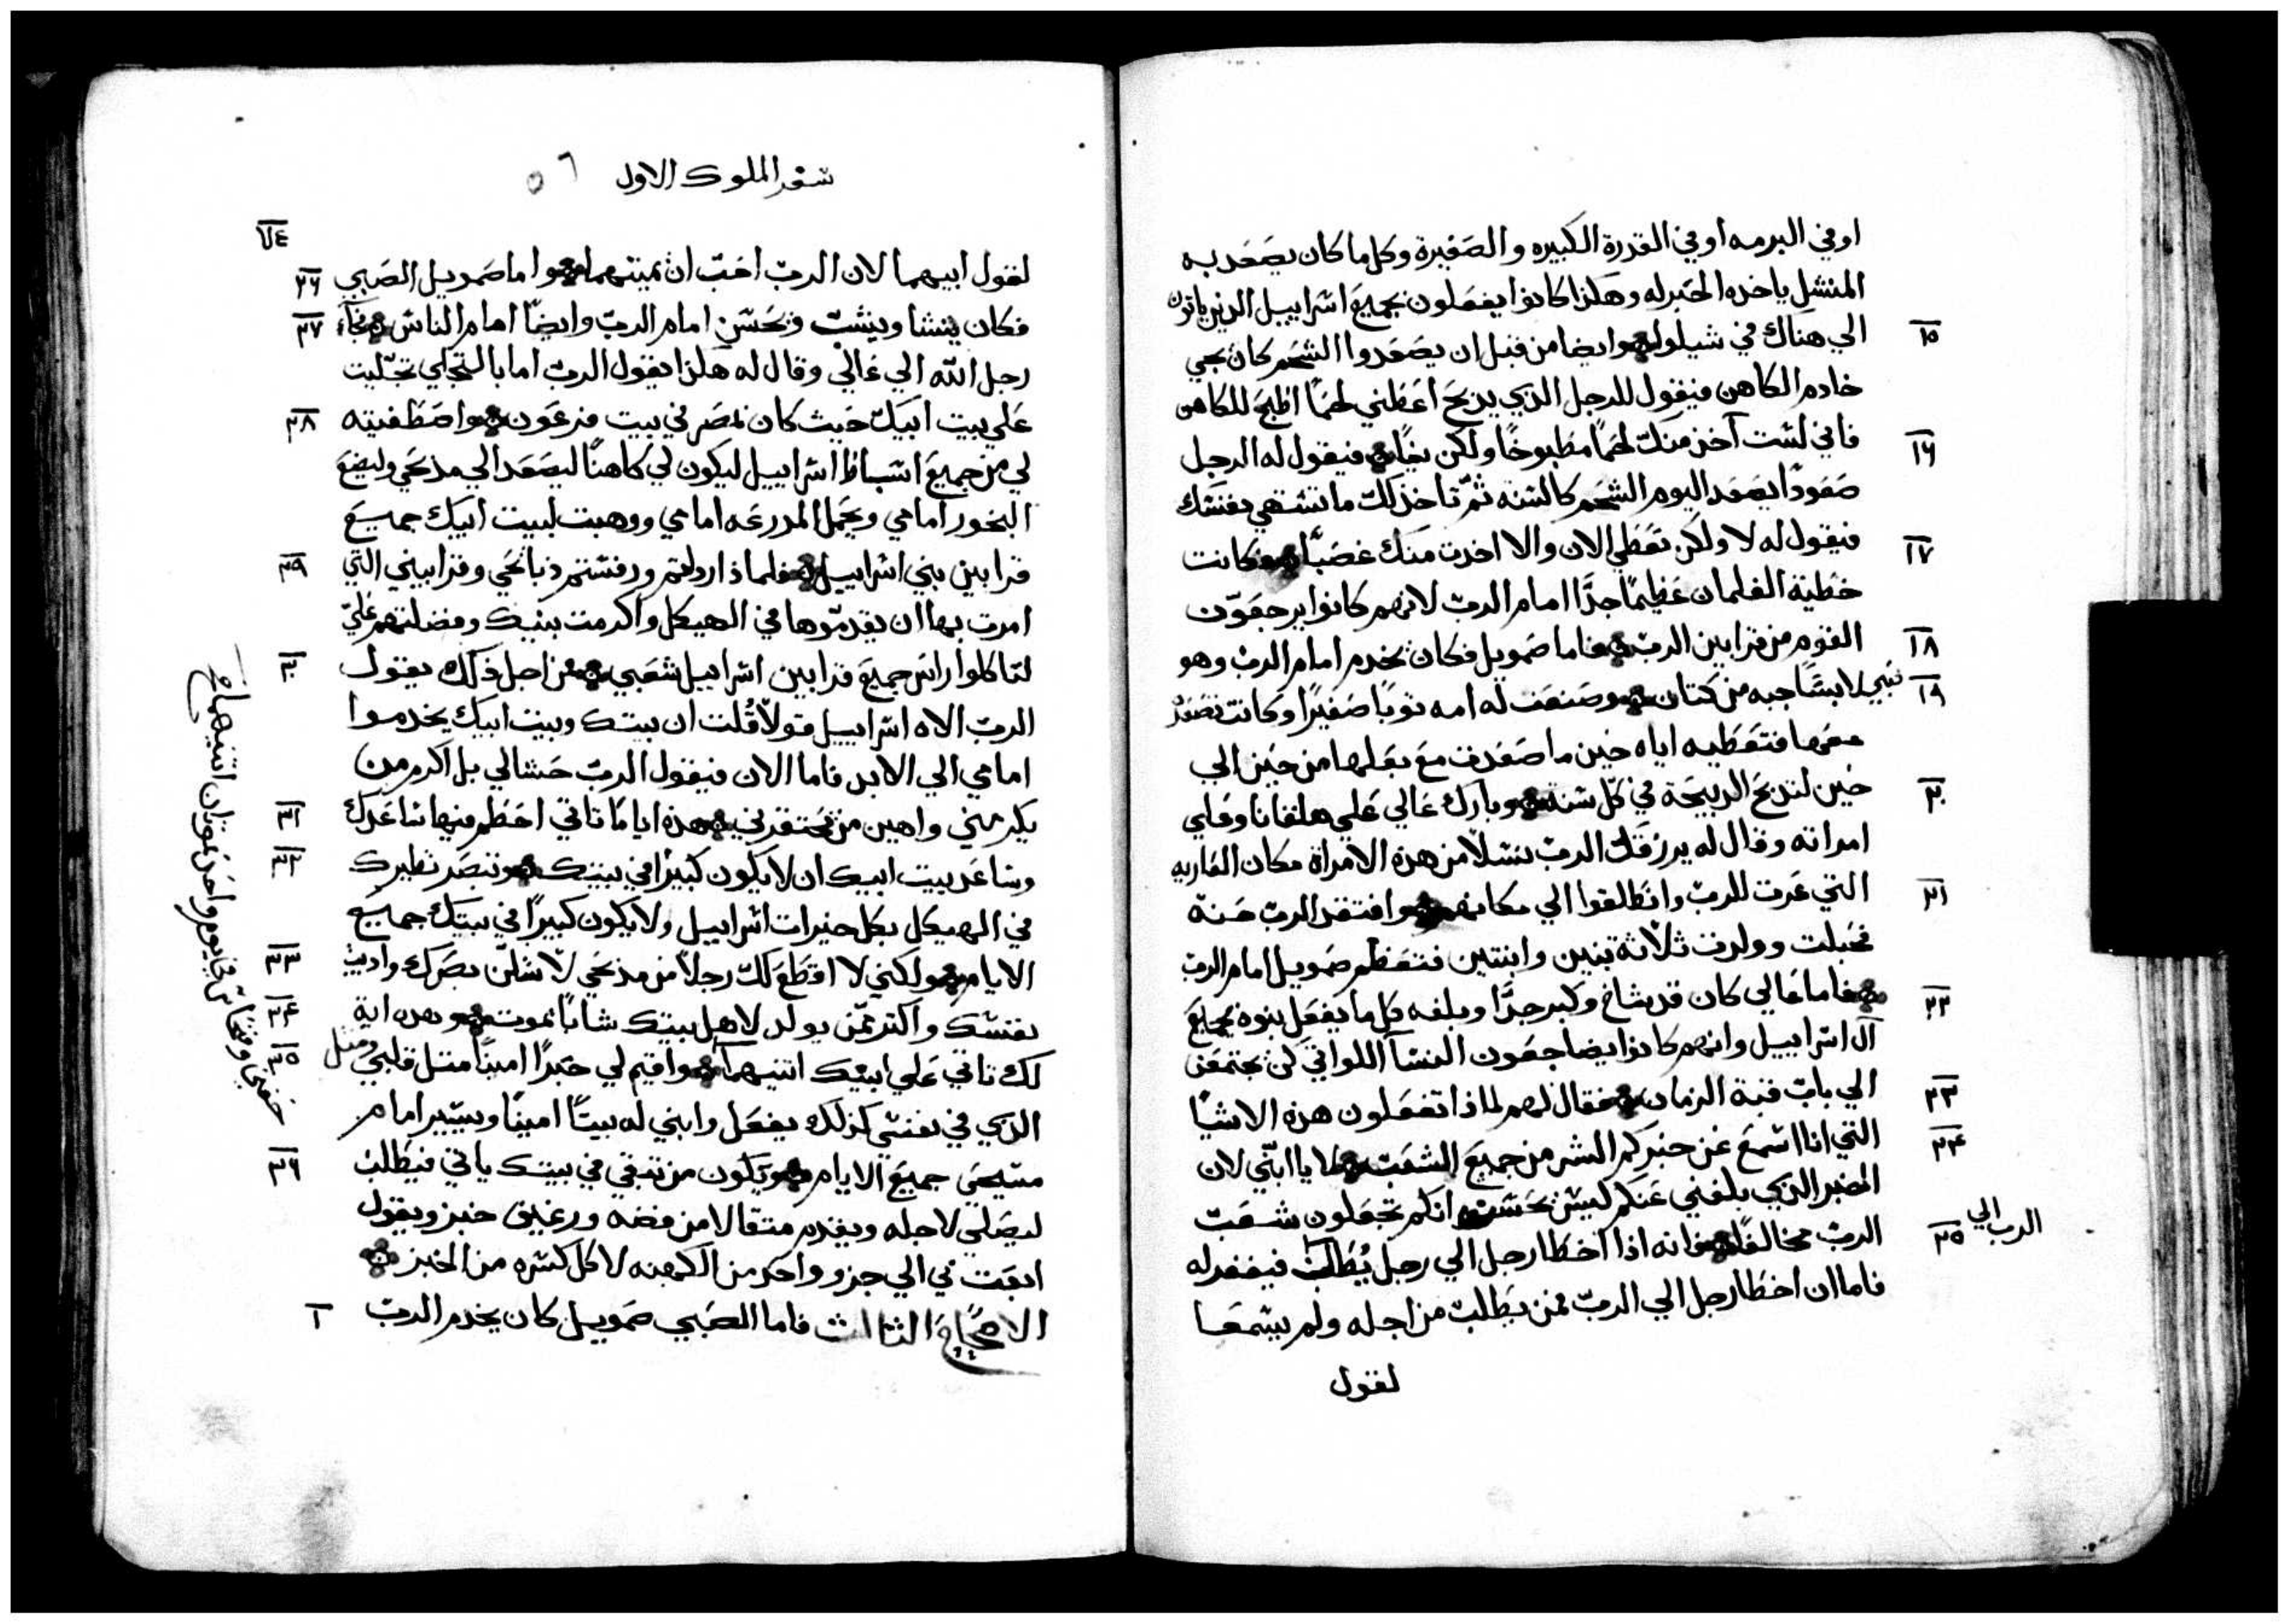 اوفي البرمه اوفي القدرة الكبيره والصغيرة وكلما كان يصعد به
المنشل ياخده الحبر له وهكذا كانوا يفعلون بجميع اسراييل الدين ياتون
١٥ الي هناك في شيلوا وايضا من قبل ان يصعدوا الشحم كان يجي
خادم الكاهن فيقول للرجل الدي يدبح اعطني لحمًا اطبخ للكاهن
١٦ فاني لست آخذ منك لحمًا مطبوخًا ولكن نيًا فيقول له الرجل
صعودًا يصعد اليوم الشحم كالسنه ثمّ تاخذ لك ما تشتهي نفسك
١٧ فيقول له لا ولكن تعطي الان والا اخدت منك غصبًا فكانت
خطية الغلمان عظيمًا جدًا امام الربّ لانهم كانوا يرجعون
١٨ القوم من قرابين الربّ فاما صمويل فكان يخدم امام الربّ وهو
١٩ صبي لابسًا جبه من كتان وصنعت له امه ثوبًا صغيرًا وكانت تصعد
معها فتعطيه اياه حين ما صعدت مع بعلها من حين الي
٢٠ حين لتدبح الدبيحة في كل سنه وبارك عالي علي هلقانا وعلي
امراته وقال له يرزقك الربّ نسلًا من هده الامراة مكان العاريه
٢١ التي عرت للربّ وانطلقوا الي مكانهم وافتقد الربّ حنة
فحبلت وولدت ثلاثة بنين وابنتين فتعظم صمويل امام الربّ
٢٢ فاما عالي كان قد شاخ وكبر جدًا وبلغه كل ما يفعل بنوه بجميع
آل اسراييل وانهم كانوا يضاجعون النسآ اللواتي كن يجتمعن
٢٣ الي باب قبة الزمان فقال لهم لماذا تفعلون هذه الاشيا
٢٤ التي انا اسمع عن خبركم الشر من جميع الشعب لا يا ابنّي لان
الخبر الدي بلغني عنكم ليس بحسن انكم تجعلون شعب
٢٥ الربّ مخالفًا فانه اذا اخطا رجل الي رجل يُطلب فيغفر له
الرب الي
فاما ان اخطا رجل الي الربّ فمن يطلب من اجله ولم يسمعا
لقول
سفر الملوك الاول ٥٦
٧٤
لقول ابيهما لان الربّ احبّ ان يميتهما واما صمويل الصبي ٢٦
فكان ينشا وينشب وبحسن امام الربّ وايضًا امام الناس فجآء ٢٧
رجل الله الي عالي وقال له هكذا يقول الربّ اما بالتجلي تجّليت
علي بيت ابيك حيث كان بمصر في بيت فرعون واصطفيته ٢٨
لي من جميع اسباط اسراييل ليكون لي كاهنًا ليصعد الي مدبحي وليضع
البخور امامي ويحمل المدرعه امامي ووهبت لبيت ابيك جميع
قرابين بني اسراييل فلماذ اردلتم ورفستم دبايحي وقرابيني التي ٢٩
امرت بها ان يقدموها في الهيكل واكرمت بنيك وفضلتهم عليّ
لتاكلوا راس جميع قرابين اسراييل شعبي من اجل ذلك يقول ٣٠
الربّ الاه اسراييل قولًا قُلت ان بيتك وبيت ابيك يخدموا
امامي الي الابد فاما الان فيقول الربّ حشا لي بل اكرم من
يكرمني واهين من يحتقرني هده اياما تاتي احطم فيها ساعدك ٣١
وساعد بيت ابيك ان لا يكون كبيرًا في بيتك وتبصر نظيرك ٣٢
في الهيكل بكل خيرات اسراييل ولا يكون كبيرًا في بيتك جميع
الايام ولكني لا اقطع لك رجلًا من مدبحي لاشلّ بصرك واديب ٣٣
نفسك واكثر من يولد لاهل بيتك شابًا يموت وهده اية ٣٤
لك تاتي علي ابنيك اتنيهما واقيم لي حبرًا امينًا متل قلبي ومتل ٣٥
الدي في نفسي كذلك يفعل وابني له بيتًا امينًا ويسير امام
مسيحي جميع الايام ويكون من تبقي في بيتك ياتي فيطلب ٣٦
ليصلي لاجله ويقدم متقالًا من فضه ورغيف خبز ويقول
ابعت بي الي جزو واحد من الكهنه لاكل كسره من الخبز
الاصحاح الثالث فاما الصبي صمويل كان يخدم الربّ ١
حفني وفنحاس في يوم واحد يموتان اتنيهما